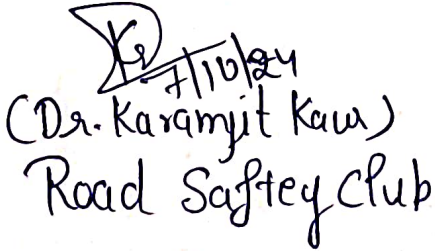 7/10/24
(Dr. Karamjit Kaur)
Road Saftey Club